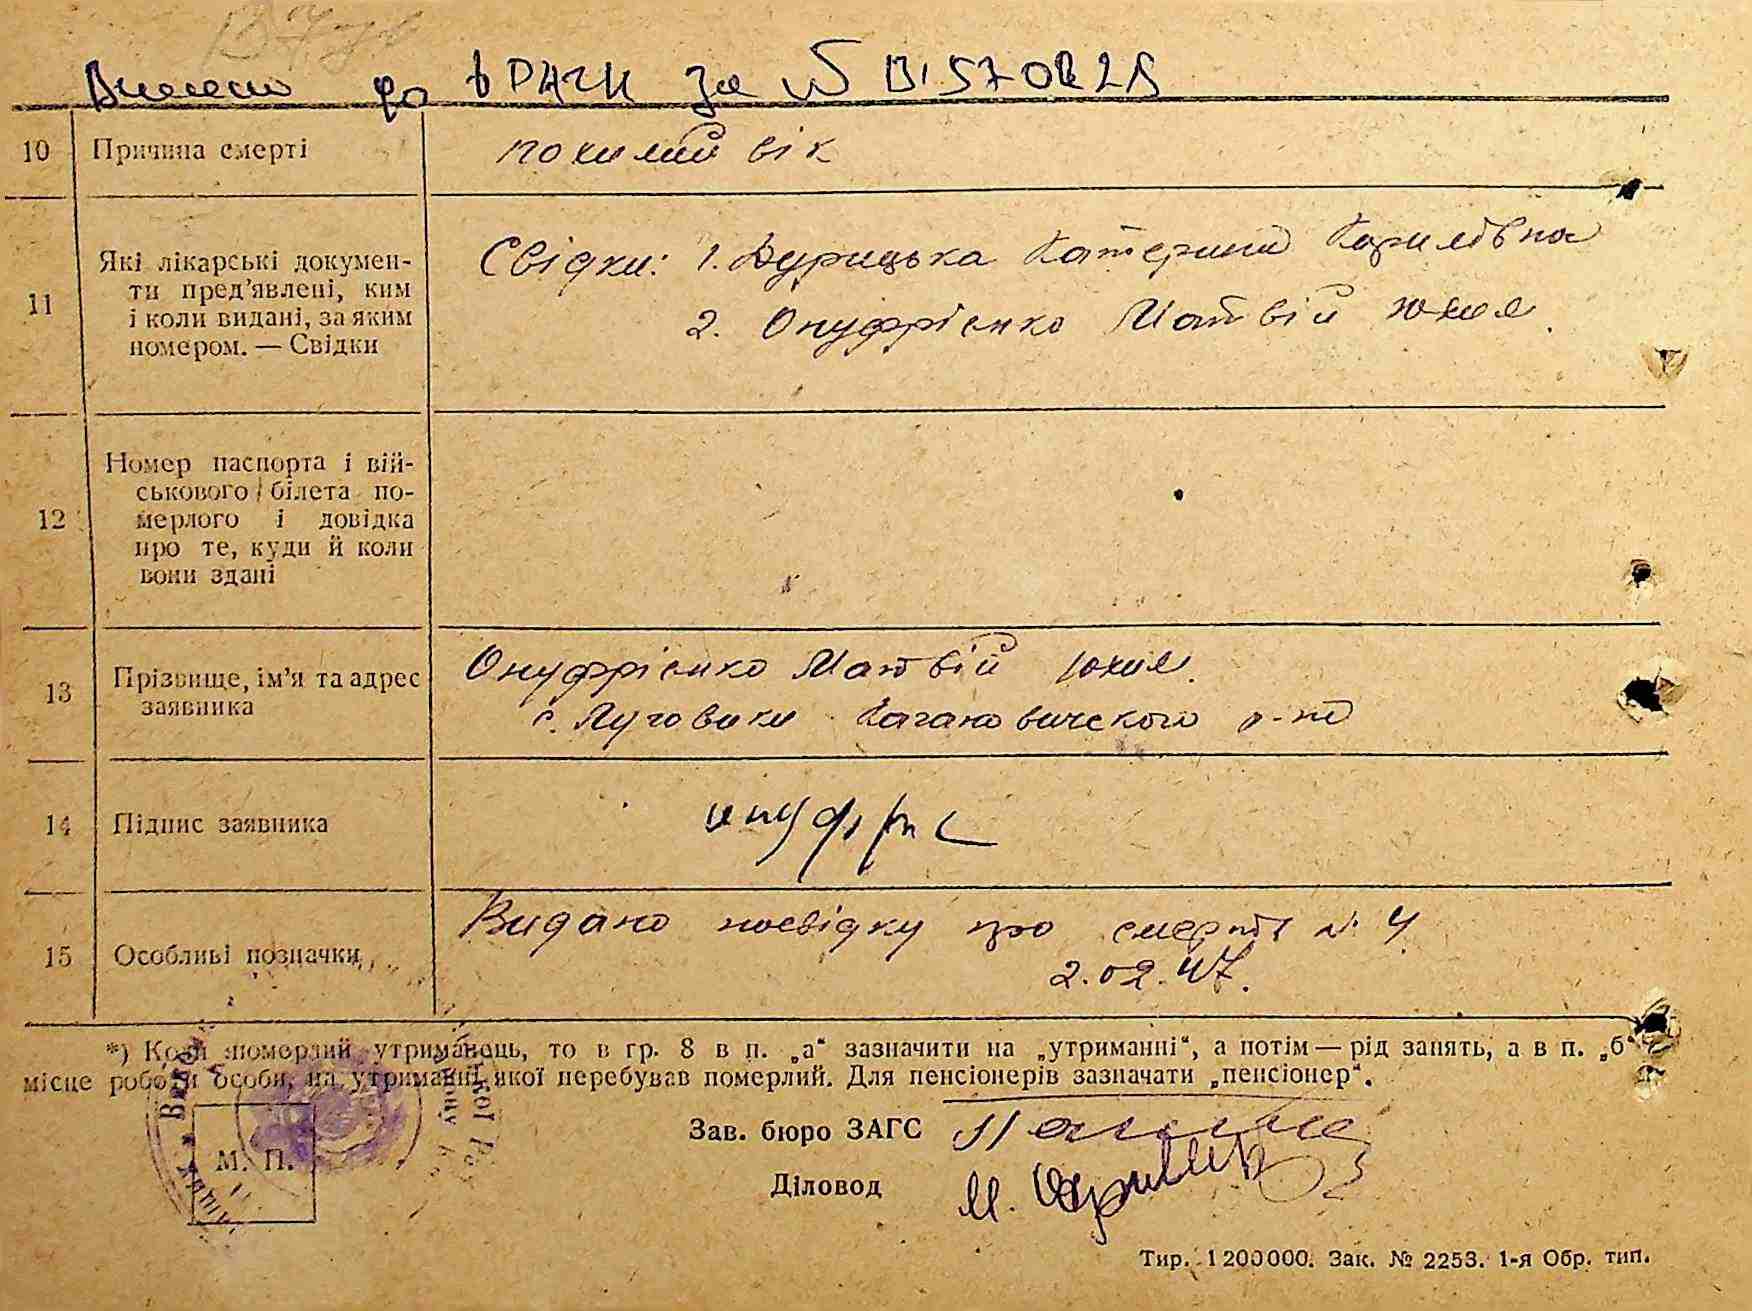 Внесено до ВРАЦС за №
10 Причина смерті похилий вік
11 Які лікарські документи пред'явлені, ким і коли видані, за яким номером. — Свідки
Свідки: 1. Дурицька Катерина Кирилівна
2. Онуфрієнко Матвій Юхим.
12 Номер паспорта і військового білета померлого і довідка про те, куди й коли вони здані
13 Прізвище, ім'я та адрес заявника
Онуфрієнко Матвій Юхим.
с. Луговики Кагановичского р-но
14 Підпис заявника онуфрі
15 Особливі позначки Видано посвідку про смерть № 4
2.02.47.
*) Коли померлий утриманець, то в гр. 8 в п. „а“ зазначити на „утриманні“, а потім — рід занять, а в п. „б“
місце роботи особи, на утриманні якої перебував померлий. Для пенсіонерів зазначати „пенсіонер“.
Зав. бюро ЗАГС
М. П.
Діловод
Тир. 1200000. Зак. № 2253. 1-я Обр. тип.